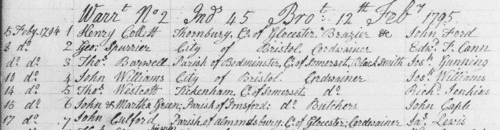 Warrt. No 2 Ind 45 Brot. 12th Feby 1795
5 Feby. 1794 1 Henry Collett Thornbury, Co. of Glocester Brazier &c John Ford
8 do 2 Geo. Spurrier City of Bristol, Cordwainer Edwd. T. Cann
do do 3 Thos. Barwell Parish of Bedminster, Co. of Somerset, Black Smith Jos. Gunning
10 do 4 John Williams City of Bristol, Cordwainer Jos. Williams
14 do 5 Thos. Westcott Tickenham, Co. of Somerset, do Richd. Jenkins
15 do 6 John & Martha Green, Parish of Butchers John Caple
17 do 7 John Parish of Almondsbury, Co. of Glocester, Cordwainer Jas. Lewis